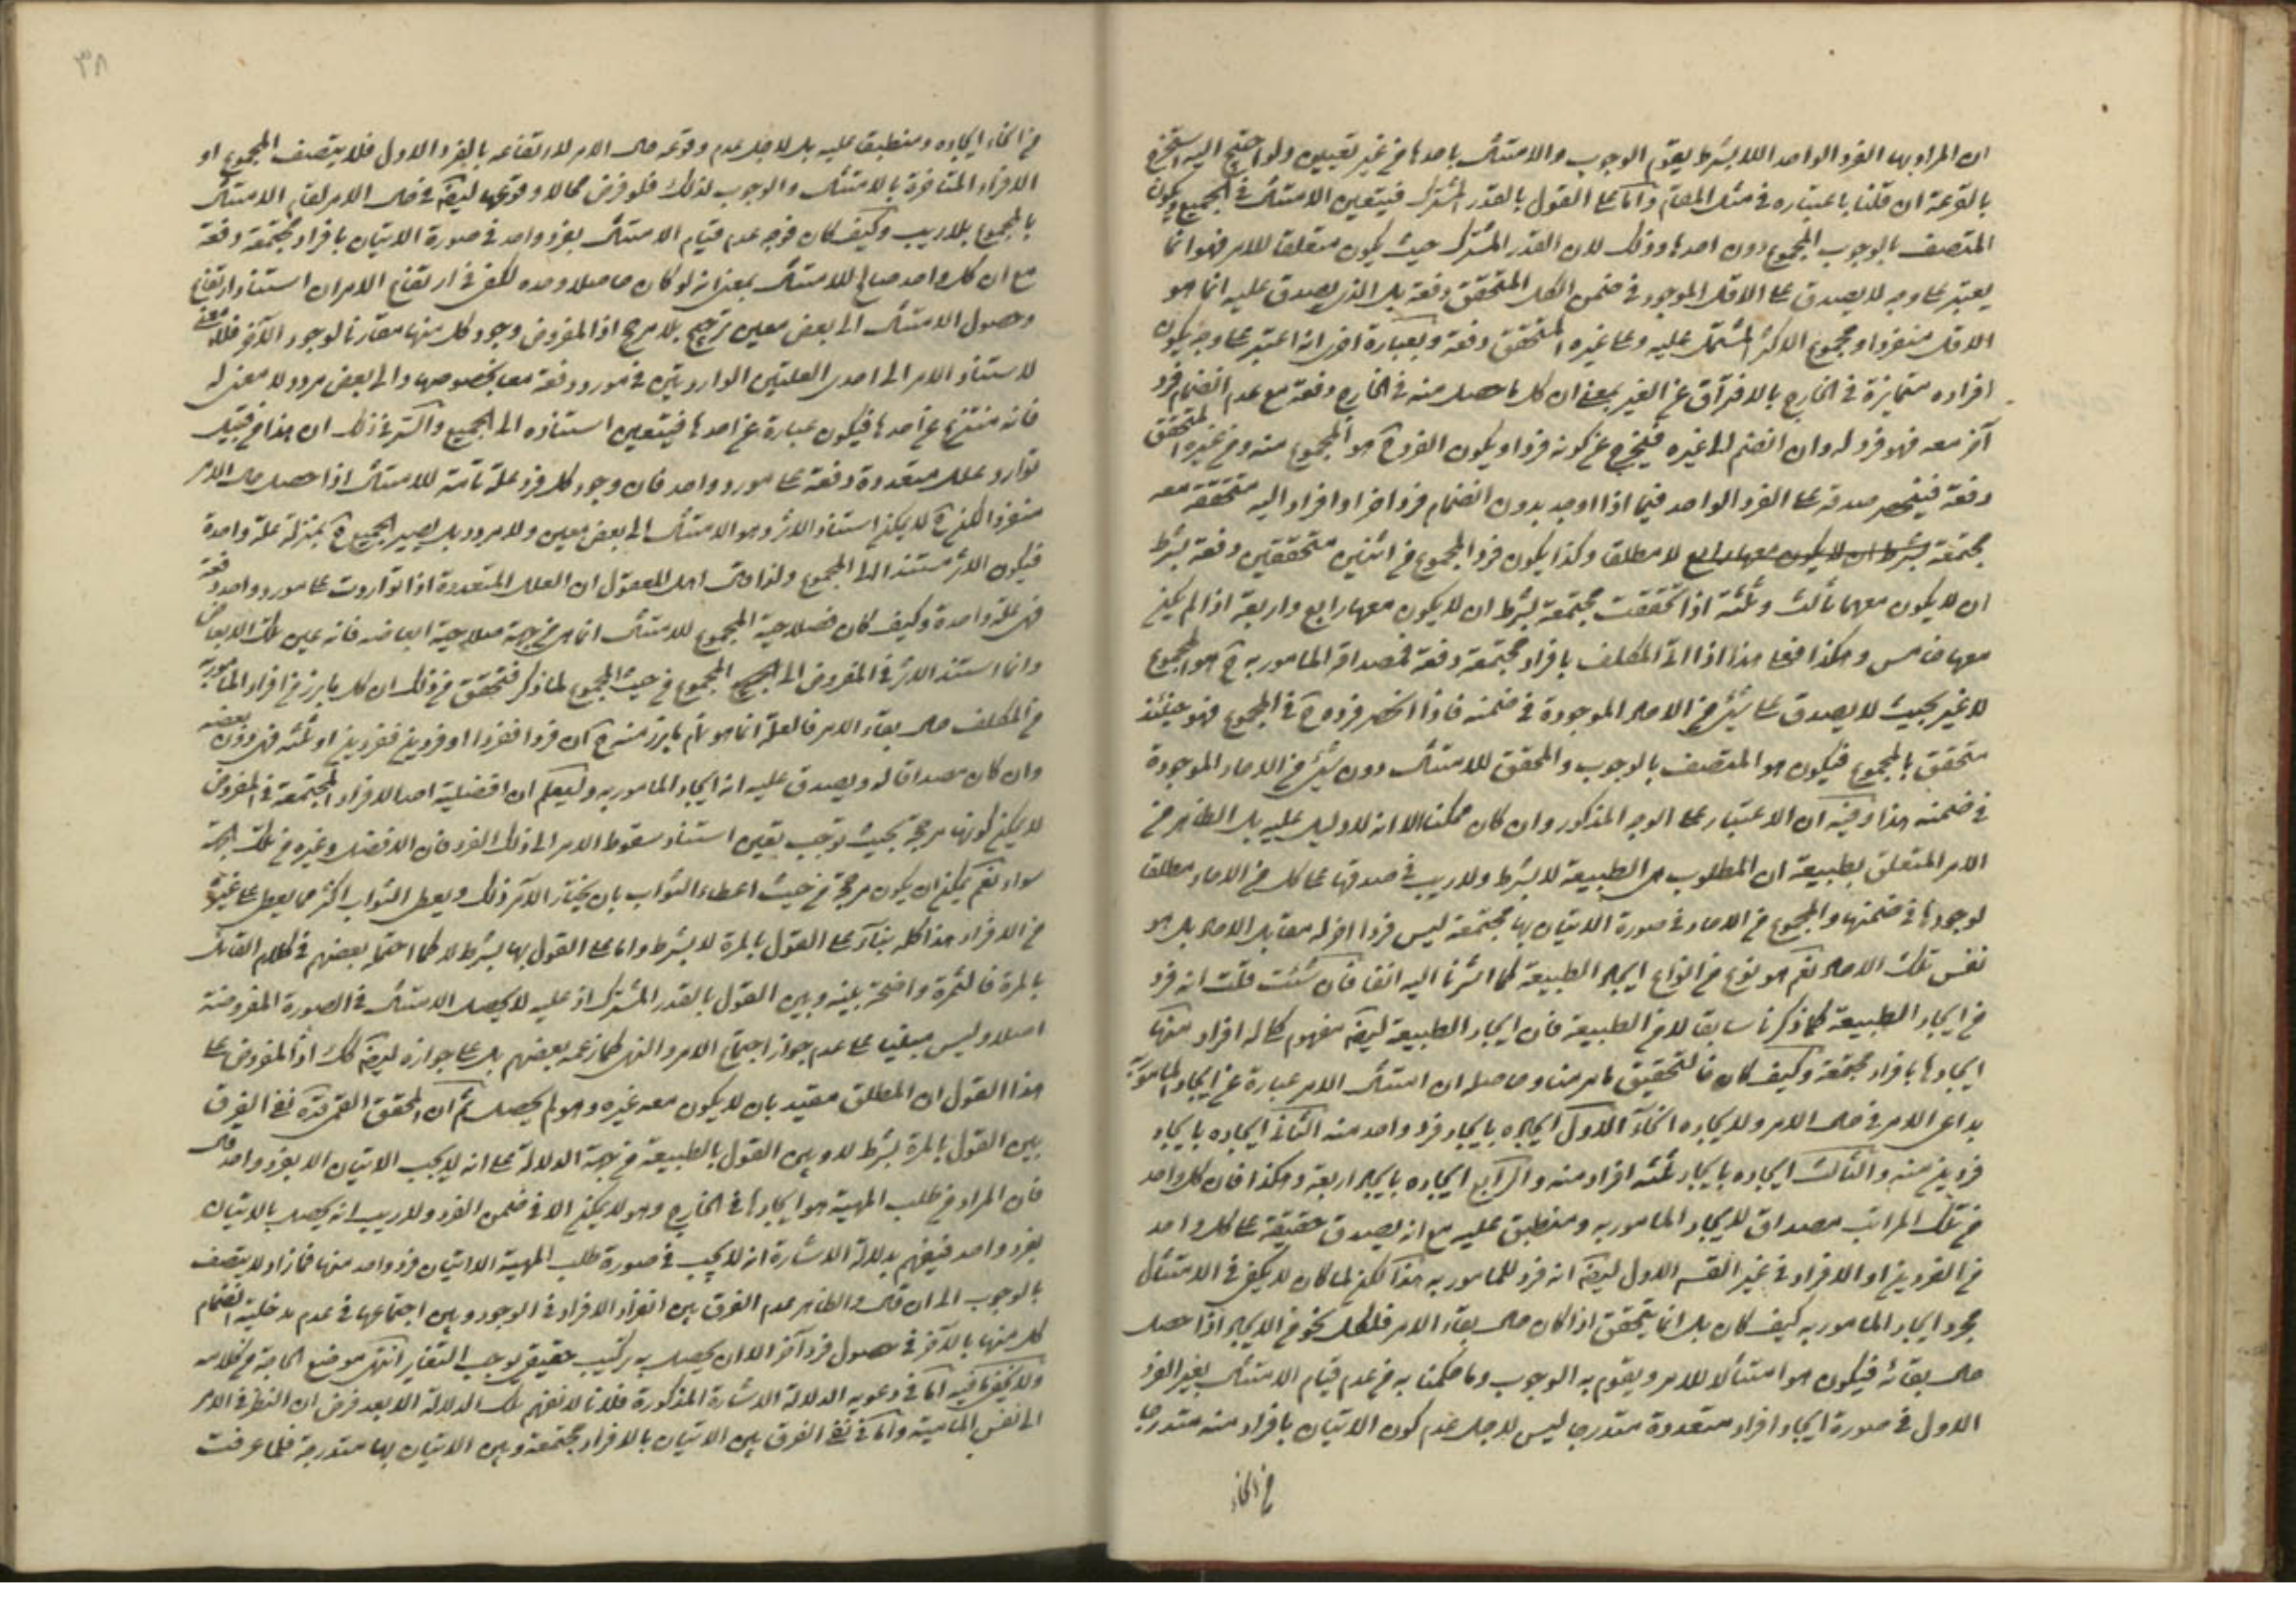 ان المراد بها الفرد الواحد اللا بشرط يقوم الوجوب والامتثال باحدها من غير تعيين ولو احتيج اليه استخرج
بالقرعة ان قلنا باعتباره في مثل المقام واما على القول بالقدر المشترك فيتعين الامتثال في الجميع ويكون
المتصف بالوجوب المجموع دون احدها وذلك لان القدر المشترك حيث يكون متعلقا للامر فهو انما
يعتبر على وجه لا يصدق على الاقل الموجود في ضمن الكل المتحقق دفعة بل الذي يصدق عليه انما هو
الاقل منفردا ومجموع الاكثر المشتمل عليه وعلى غيره المتحقق دفعة وبعبارة اخرى انه اعتبر على وجه يكون
افراده متمايزة في الخارج بالافتراق عن الغير بمعنى ان كل ما حصل منه في الخارج دفعة مع عدم انضمام فرد
آخر معه فهو فرد له وان انضم اليه غيره فيخرج عن كونه فردا ويكون الفرد ح هو المجموع منه ومن غيره المتحقق
دفعة فينحصر صدقه على الفرد الواحد فيما اذا اوجد بدون انضمام فرد اخر او افراد اليه متحققة معه
مجتمعة بشرط ان لا يكون معها رابع لا مطلقا وكذا يكون فرد المجموع من اثنين متحققين دفعة بشرط
ان لا يكون معهما ثالث وثلثة اذا تحققت مجتمعة بشرط ان لا يكون معها رابع واربعة اذا لم يكن
معها خامس وهكذا فعلى هذا اذا اتى المكلف بافراد مجتمعة دفعة فمصداق المامور به ح هو المجموع
لا غير بحيث لا يصدق على شيء من الاحاد الموجودة في ضمنه فاذا انحصر فرده ح في المجموع فهو حينئذ
متحقق بالمجموع فيكون هو المتصف بالوجوب والمحقق للامتثال دون شيء من الاحاد الموجودة
في ضمنه هذا وفيه ان الاعتبار على الوجه المذكور وان كان ممكنا الا انه لا دليل عليه بل الظاهر من
الامر المتعلق بطبيعة ان المطلوب هي الطبيعة لا بشرط ولا ريب في صدقها على كل من الاحاد مطلقا
لوجودها في ضمنها والمجموع من الاحاد في صورة الاتيان بها مجتمعة ليس فردا اخر له مقابل الاحاد بل هو
نفس تلك الاحاد نعم هو نوع من انواع ايجاد الطبيعة كما اشرنا اليه انفا فان شئت قلت انه فرد
من ايجاد الطبيعة كما ذكرنا سابقا لا من الطبيعة فان ايجاد الطبيعة ايضا مفهوم كلي له افراد منها
ايجادها بافراد مجتمعة وكيف كان فالتحقيق ما مر منا وحاصله ان امتثال الامر عبارة عن ايجاد المامور به
بداعي الامر في حال الامر ولايجاده انحاء الاول ايجاده بايجاد فرد واحد منه الثاني ايجاده بايجاد
فردين منه والثالث ايجاده بايجاد ثلثة افراد منه والرابع ايجاده بايجاد اربعة وهكذا فان كل واحد
من تلك المراتب مصداق لايجاد المامور به ومنطبق عليه مع انه يصدق حقيقة على كل واحد
من الفردين او الافراد في غير القسم الاول ايضا انه فرد للمامور به هذا لكن لما كان لا يكفي في الامتثال
مجرد ايجاد المامور به كيف كان بل انما يتحقق اذا كان حال بقاء الامر فلكل نحو من الايجاد اذا حصل
حال بقائه فيكون هو امتثالا للامر ويقوم به الوجوب وما حكمنا به من عدم قيام الامتثال بغير الفرد
الاول في صورة ايجاد افراد متعددة متدرجا ليس لاجل عدم كون الاتيان بافراد منه متدرجا
من انحاء
٣٨
من انحاء ايجاده ومنطبقا عليه بل لاجل عدم وقوعه حال الامر لارتفاعه بالفرد الاول فلا يتصف المجموع او
الافراد المتاخرة بالامتثال والوجوب لذلك فلو فرض محالا وقوعها ايضا في حال الامر لقام الامتثال
بالمجموع بلا ريب وكيف كان فوجه عدم قيام الامتثال بفرد واحد في صورة الاتيان بافراد مجتمعة دفعة
مع ان كل واحد صالح للامتثال بمعنى انه لو كان حاصلا وحده لكفى في ارتفاع الامر ان استناد ارتفاع
وحصول الامتثال الى بعض معين ترجيح بلا مرجح اذ المفروض وجود كل منها مقارنا لوجود الآخر فلا معنى
لاستناد الامر الى احدى العلتين الواردتين في مورد دفعة معا بخصوصها والى بعض مردد لا معنى له
فانه منتزع عن احدها فيكون عبارة عن احدها فيتعين استناده الى الجميع والسر في ذلك ان هذا من قبيل
توارد علل متعددة دفعة على مورد واحد فان وجود كل فرد علة تامة للامتثال اذا حصل حال الامر
منفردا لكن ح لا يمكن استناد الاثر وهو الامتثال الى بعض معين ولا مردد بل يصير الجميع ح بمنزلة علة واحدة
فيكون الاثر مستندا الى المجموع ولذا قال اهل المعقول ان العلل المتعددة اذا تواردت على مورد واحد دفعة
فهي علة واحدة وكيف كان فصلاحية المجموع للامتثال انما هي من جهة صلاحية ابعاضه فانه عين تلك الابعاض
وانما استند الاثر في المفروض الى المجموع من حيث المجموع لما ذكر فتحقق من ذلك ان كل ما برز من افراد المامور به
من المكلف حال بقاء الامر فالعلة انما هو تمام ما برز منه ح ان فردا ففردا او فردين ففردين او ثلثة فهي دون بعضه
وان كان مصداقا له ويصدق عليه انه ايجاد المامور به وليعلم ان افضلية احد الافراد المجتمعة في المفروض
لا يمكن كونها مرجحة بحيث توجب تعين استناد سقوط الامر الى ذلك الفرد فان الافضل وغيره من تلك الجهة
سواء نعم يمكن ان يكون مرجحة من حيث اعطاء الثواب بان يختار الآمر ذلك ويعطي الثواب اكثر مما يعطي على غيره
من الافراد هذا كله بناء على القول بالمرة لا بشرط واما على القول بها بشرط لا كما احتمله بعضهم في كلام القائل
بالمرة فالثمرة واضحة بينه وبين القول بالقدر المشترك اذ عليه لا يحصل الامتثال في الصورة المفروضة
اصلا وليس مبنيا على عدم جواز اجتماع الامر والنهي كما زعمه بعضهم بل على جوازه ايضا كذلك اذ المفروض على
هذا القول ان المطلق مقيد بان لا يكون معه غيره وهو لم يحصل ثم ان المحقق القمي قده نفى الفرق
بين القول بالمرة بشرط لا وبين القول بالطبيعة من جهة الدلالة على انه لا يجب الاتيان الا بفرد واحد قال
فان المراد من طلب المهية هو ايجادها في الخارج وهو لا يمكن الا في ضمن الفرد ولا ريب انه يحصل بالاتيان
بفرد واحد فيفهم بدلالة الاشارة انه لا يجب في صورة طلب المهية الا اتيان فرد واحد منها فما زاد لا يتصف
بالوجوب الى ان قال والظاهر عدم الفرق بين انفراد الافراد في الوجود وبين اجتماعها في عدم مدخلية انضمام
كل منها بالآخر في حصول فرد آخر الا ان يحصل به تركيب حقيقي يوجب التغاير انتهى موضع الحاجة من كلامه
ولا يخفى ما فيه اما في دعويه الدلالة الاشارة المذكورة فلانا لا نفهم تلك الدلالة الا بعد فرض ان النظر في الامر
الى نفس الماهية واما في نفي الفرق بين الاتيان بالافراد مجتمعة وبين الاتيان بها متدرجة فلما عرفت